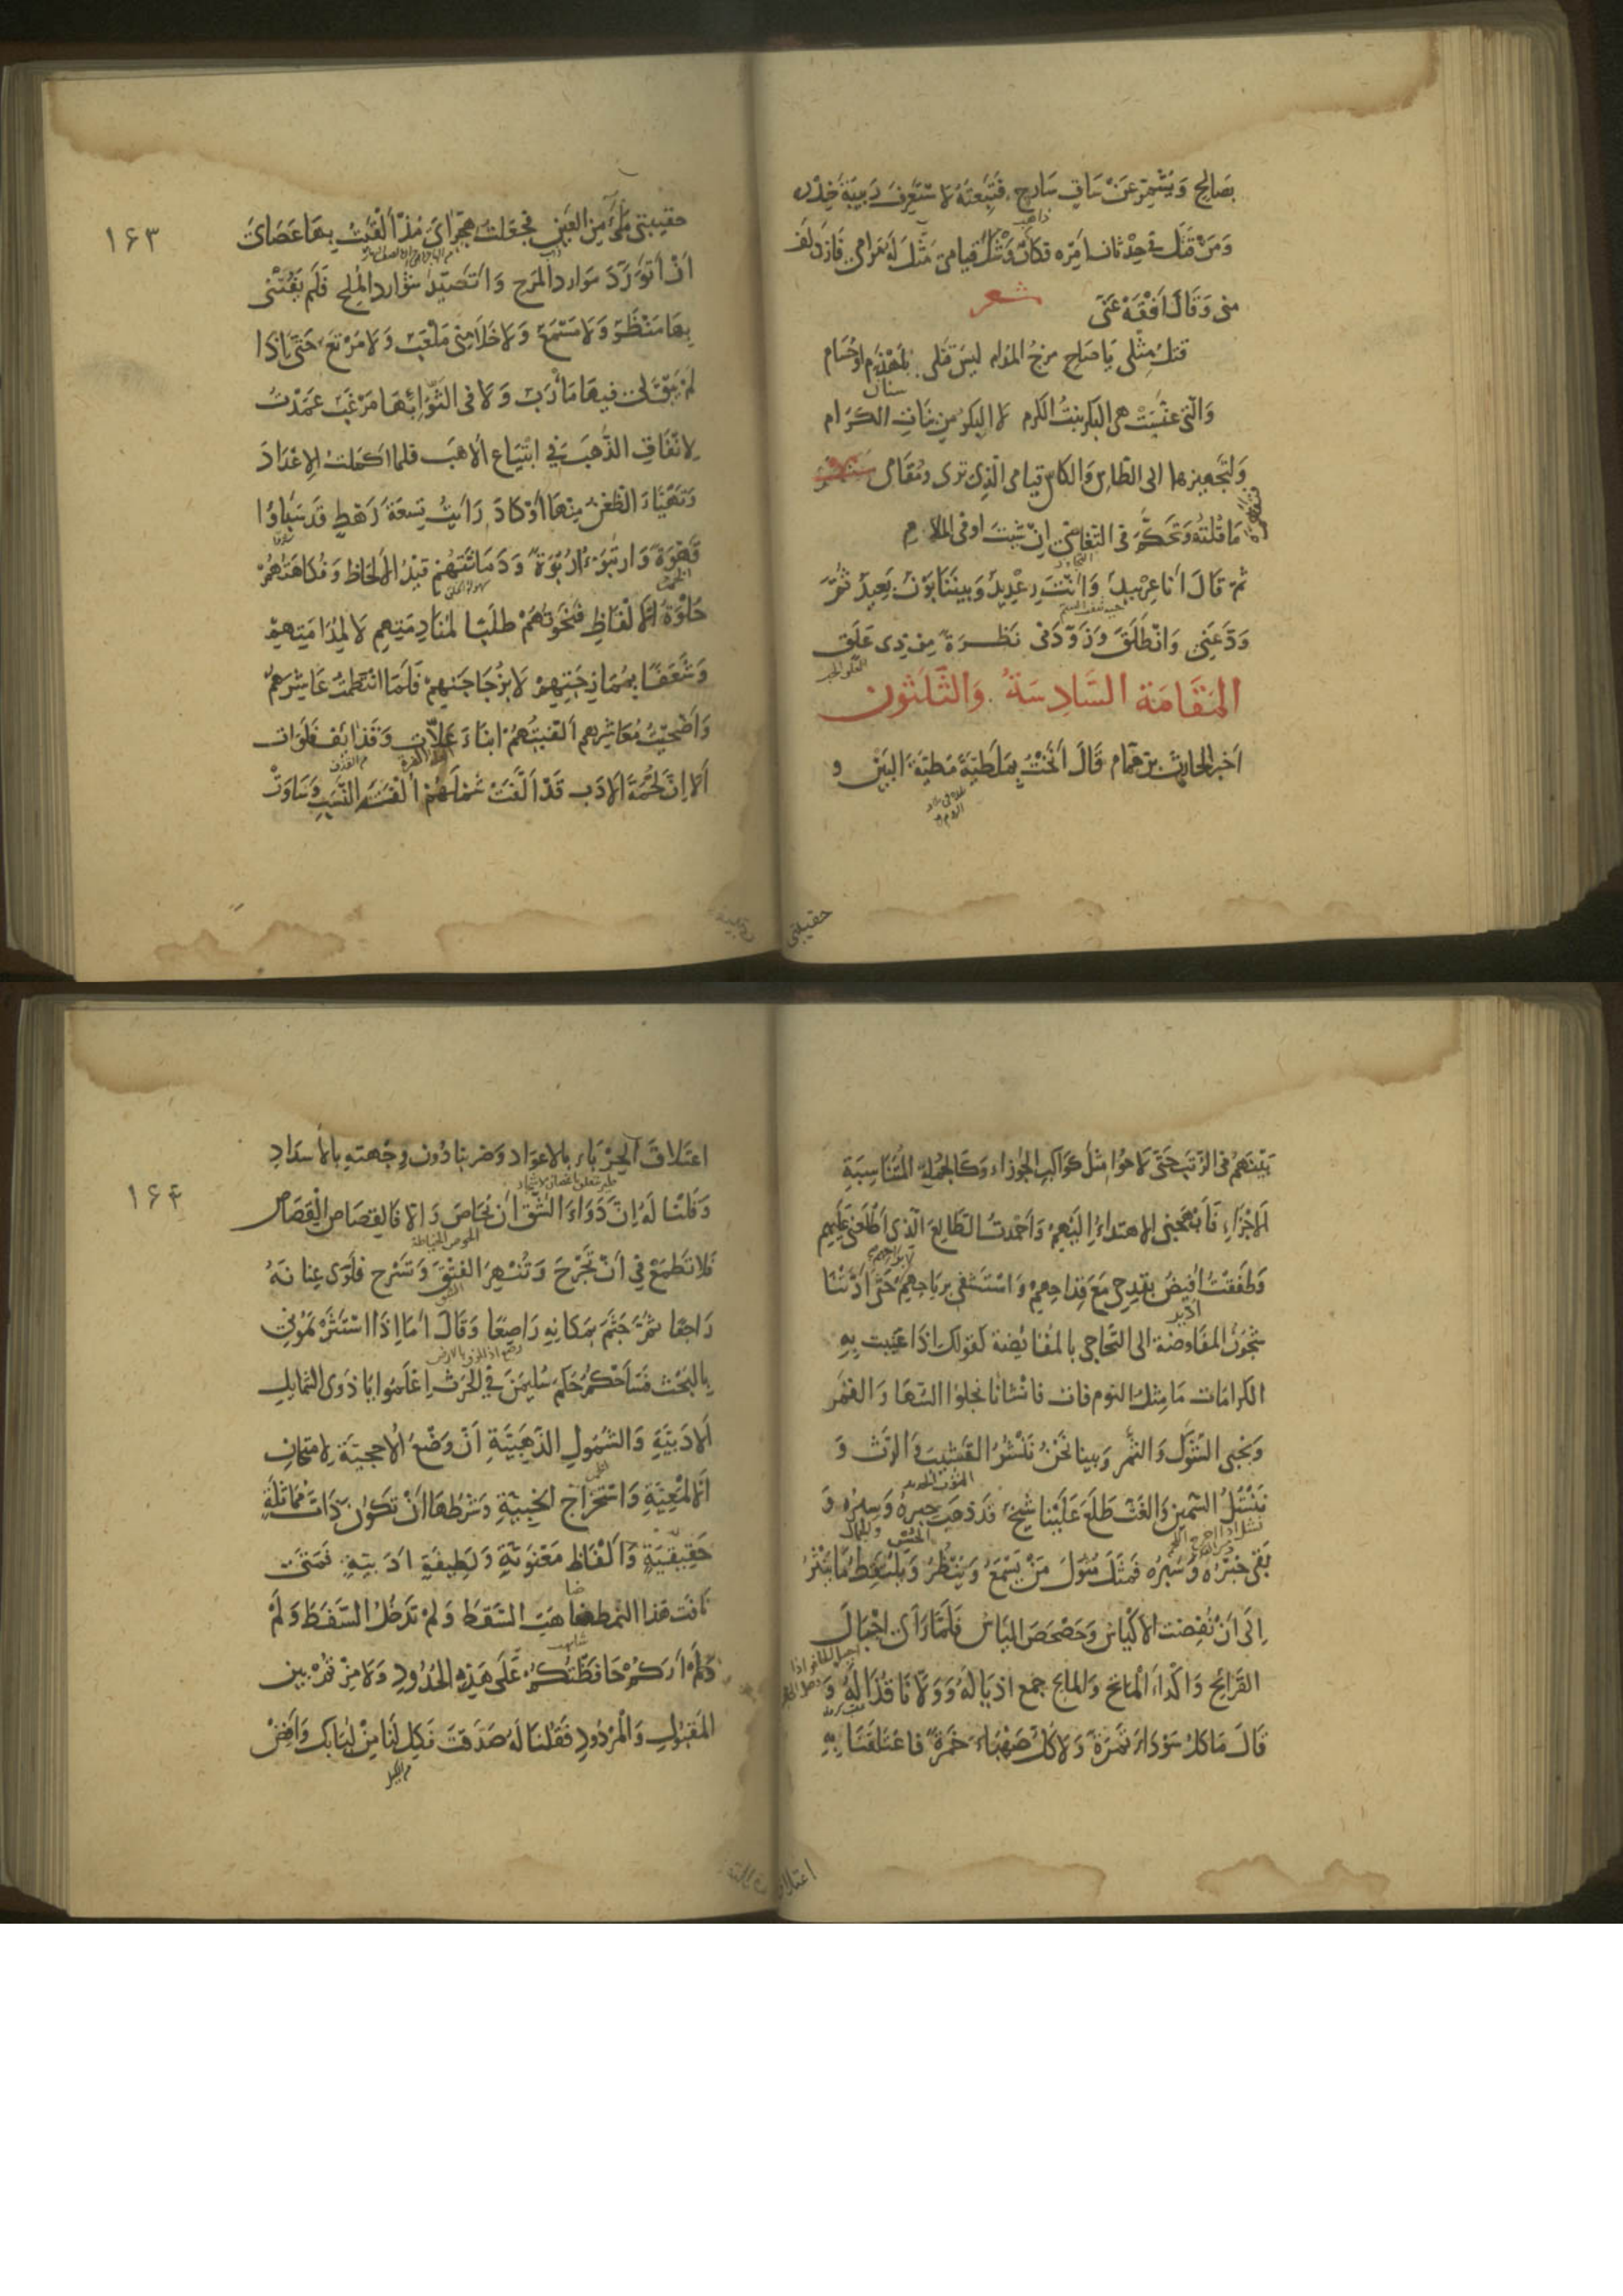 بصالح ويشمر عن ساق سارح فتبعته لاستعرف ربيبة خدره
ذاهب
ومن قتل في حدثان امره فكان وشك قيامي مثل له مرامي فازدلف
مني وقال افقه عني
شعر
قتل مثلي يا صاح مزج المدام ليس قتلي بلهذم او حسام
سنان
والتي عنست هي البكر بنت الكرم لا البكر من بنات الكرام
ولتجهيزها الى الطاس والكاس قيامي الذي ترى ومقامي
ما قلته وتحكم في التغاضي ان شئت او في الملام
ثم قال انا عربيد وانت رعديد وبيننا بون بعيد ثم
ودعني وانطلق وزودني نظرة من ذي علق
المقامة السادسة والثلثون
اخبر الحارث بن همام قال انخت بملطية مطية البين و
حقيبتي
١٦٣
حقيبتي ملأى من العين فجعلت هجيراي مذ ألقيت بها عصاي
ان أتورد موارد المرح واتصيد شوارد الملح فلم يفتني
بها منظر ولا مسمع ولا خلا مني ملعب ولا مرتع حتى اذا
لم يبق لي فيها مأرب ولا في الثواء بها مرغب عمدت
لانفاق الذهب في ابتياع الاهب فلما اكملت الاعداد
وتهيأ الظعن منها او كاد رأيت تسعة رهط قد سبأوا
قهوة وارتبؤا ربوة ودماثتهم قيد الالحاظ وفكاهتهم
حلوة الالفاظ فنحوتهم طلبا لمنادمتهم لا لمدامتهم
وشغفا بممازجتهم لا بزجاجتهم فلما انتظمت عاشرهم
واضحيت معاشرهم الفيتهم ابناء علات وقذائف فلوات
الا ان لحمة الادب قد الفت شملهم الفة النسب وساوت
بينهم في الرتب حتى لاحوا مثل كواكب الجوزاء وكالجملة المتناسبة
الاجزاء فأبهجني الاهتداء اليهم واحمدت الطالع الذي اطلعني عليهم
وطفقت افيض بقدحي مع قداحهم واستشفي برياحهم حتى ادتنا
شجون المفاوضة الى التحاجي بالمقايضة كقولك اذا عنيت به
الكرامات ما مثل النوم فات فانشأنا نجلوا السها والقمر
ونجني الشوك والثمر وبينا نحن ننشر القشيب والرث و
ننشل السمين والغث طلع علينا شيخ قد ذهب حبره وسبره و
بقي خبره وسبره فمثل مثول من يسمع وينظر ويلتقط ما ينثر
الى ان نفضت الاكياس وحصحص الياس فلما رأى اجبال
القرائح واكداء الماتح والمايح جمع اذياله وولانا قذاله و
قال ما كل سوداء تمرة ولا كل صهباء خمرة فاعتلقنا به
اعتلاق
١٦٤
اعتلاق الحرباء بالاعواد وضربنا دون وجهته بالاسداد
وقلنا له ان دواء الشق ان يحاص والا فالقصاص القصاص
فلا تطمع في ان تجرح وتنهر الفتق وتسرح فلوى عنانه
راجعا ثم جثم بمكانه راصعا وقال اما اذا استثرتموني
بالبحث فسأحكم حكم سليمن في الحرث اعلموا يا ذوي الشمايل
الادبية والشمول الذهبية ان وضع الاحجية لامتحان
الالمعية واستخراج الخبية وشرطها ان تكون ذات مماثلة
حقيقية والفاظ معنوية ولطيفة ادبية فمتى
نافت هذا النمط ضاهت السقط ولم تدخل السفط ولم
ولم اركم حافظتم على هذه الحدود ولا مزتم بين
المقبول والمردود فقلنا له صدقت فكل لنا من لبابك وافض